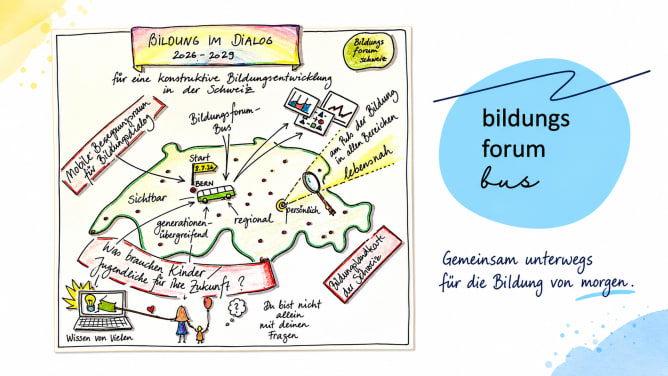 BILDUNG IM DIALOG
2026 - 2029
Bildungs
forum
schweiz
für eine konstruktive Bildungsentwicklung
in der Schweiz
Mobile Bewegungsraum
für Bildungsdialog
Bildungsforum-
Bus
am Puls der Bildung
in allen Bereichen
lebensnah
Start
BERN
Sichtbar
persönlich
generationen-
übergreifend
regional
Was brauchen Kinder /
Jugendliche für ihre Zukunft ?
Bildungslandkarte
der Schweiz
Wissen von Vielen
?
Du bist nicht
allein
mit deinen
Fragen
bildungs
forum
bus
Gemeinsam unterwegs
für die Bildung von morgen.